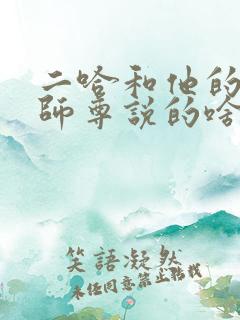 二哈和他的
師尊説的啥
笑語凝然
未任同意禁止轉載